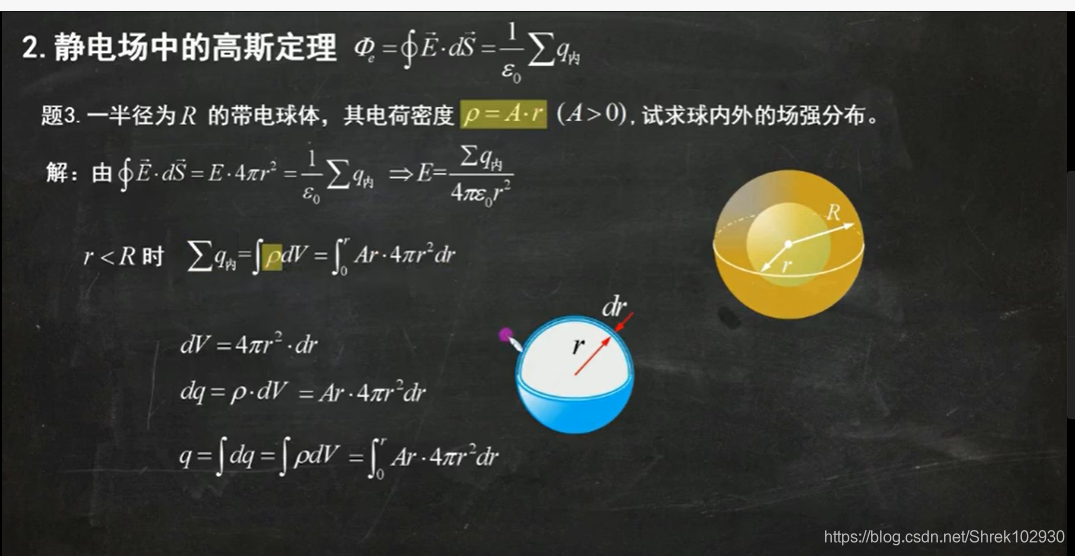 2.静电场中的高斯定理 Φₑ=∮E⃗·dS⃗=1/ε₀ ∑q内
题3.一半径为R 的带电球体，其电荷密度 ρ=A·r (A>0),试求球内外的场强分布。
解：由∮E⃗·dS⃗=E·4πr²=1/ε₀ ∑q内 ⇒E=∑q内/4πε₀r²
R
r
r<R时 ∑q内=∫ρdV=∫₀ʳ Ar·4πr²dr
dr
r
dV=4πr²·dr
dq=ρ·dV =Ar·4πr²dr
q=∫dq=∫ρdV =∫₀ʳ Ar·4πr²dr
https://blog.csdn.net/Shrek102930